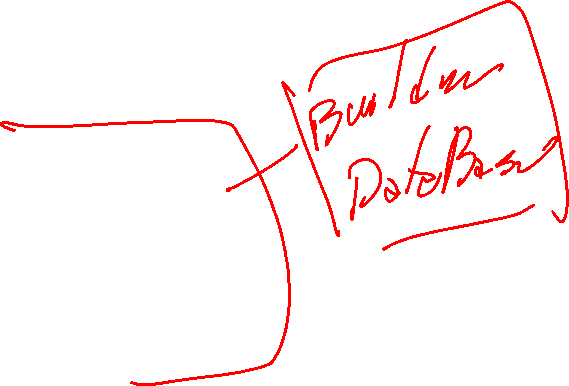 Builder
DataBase